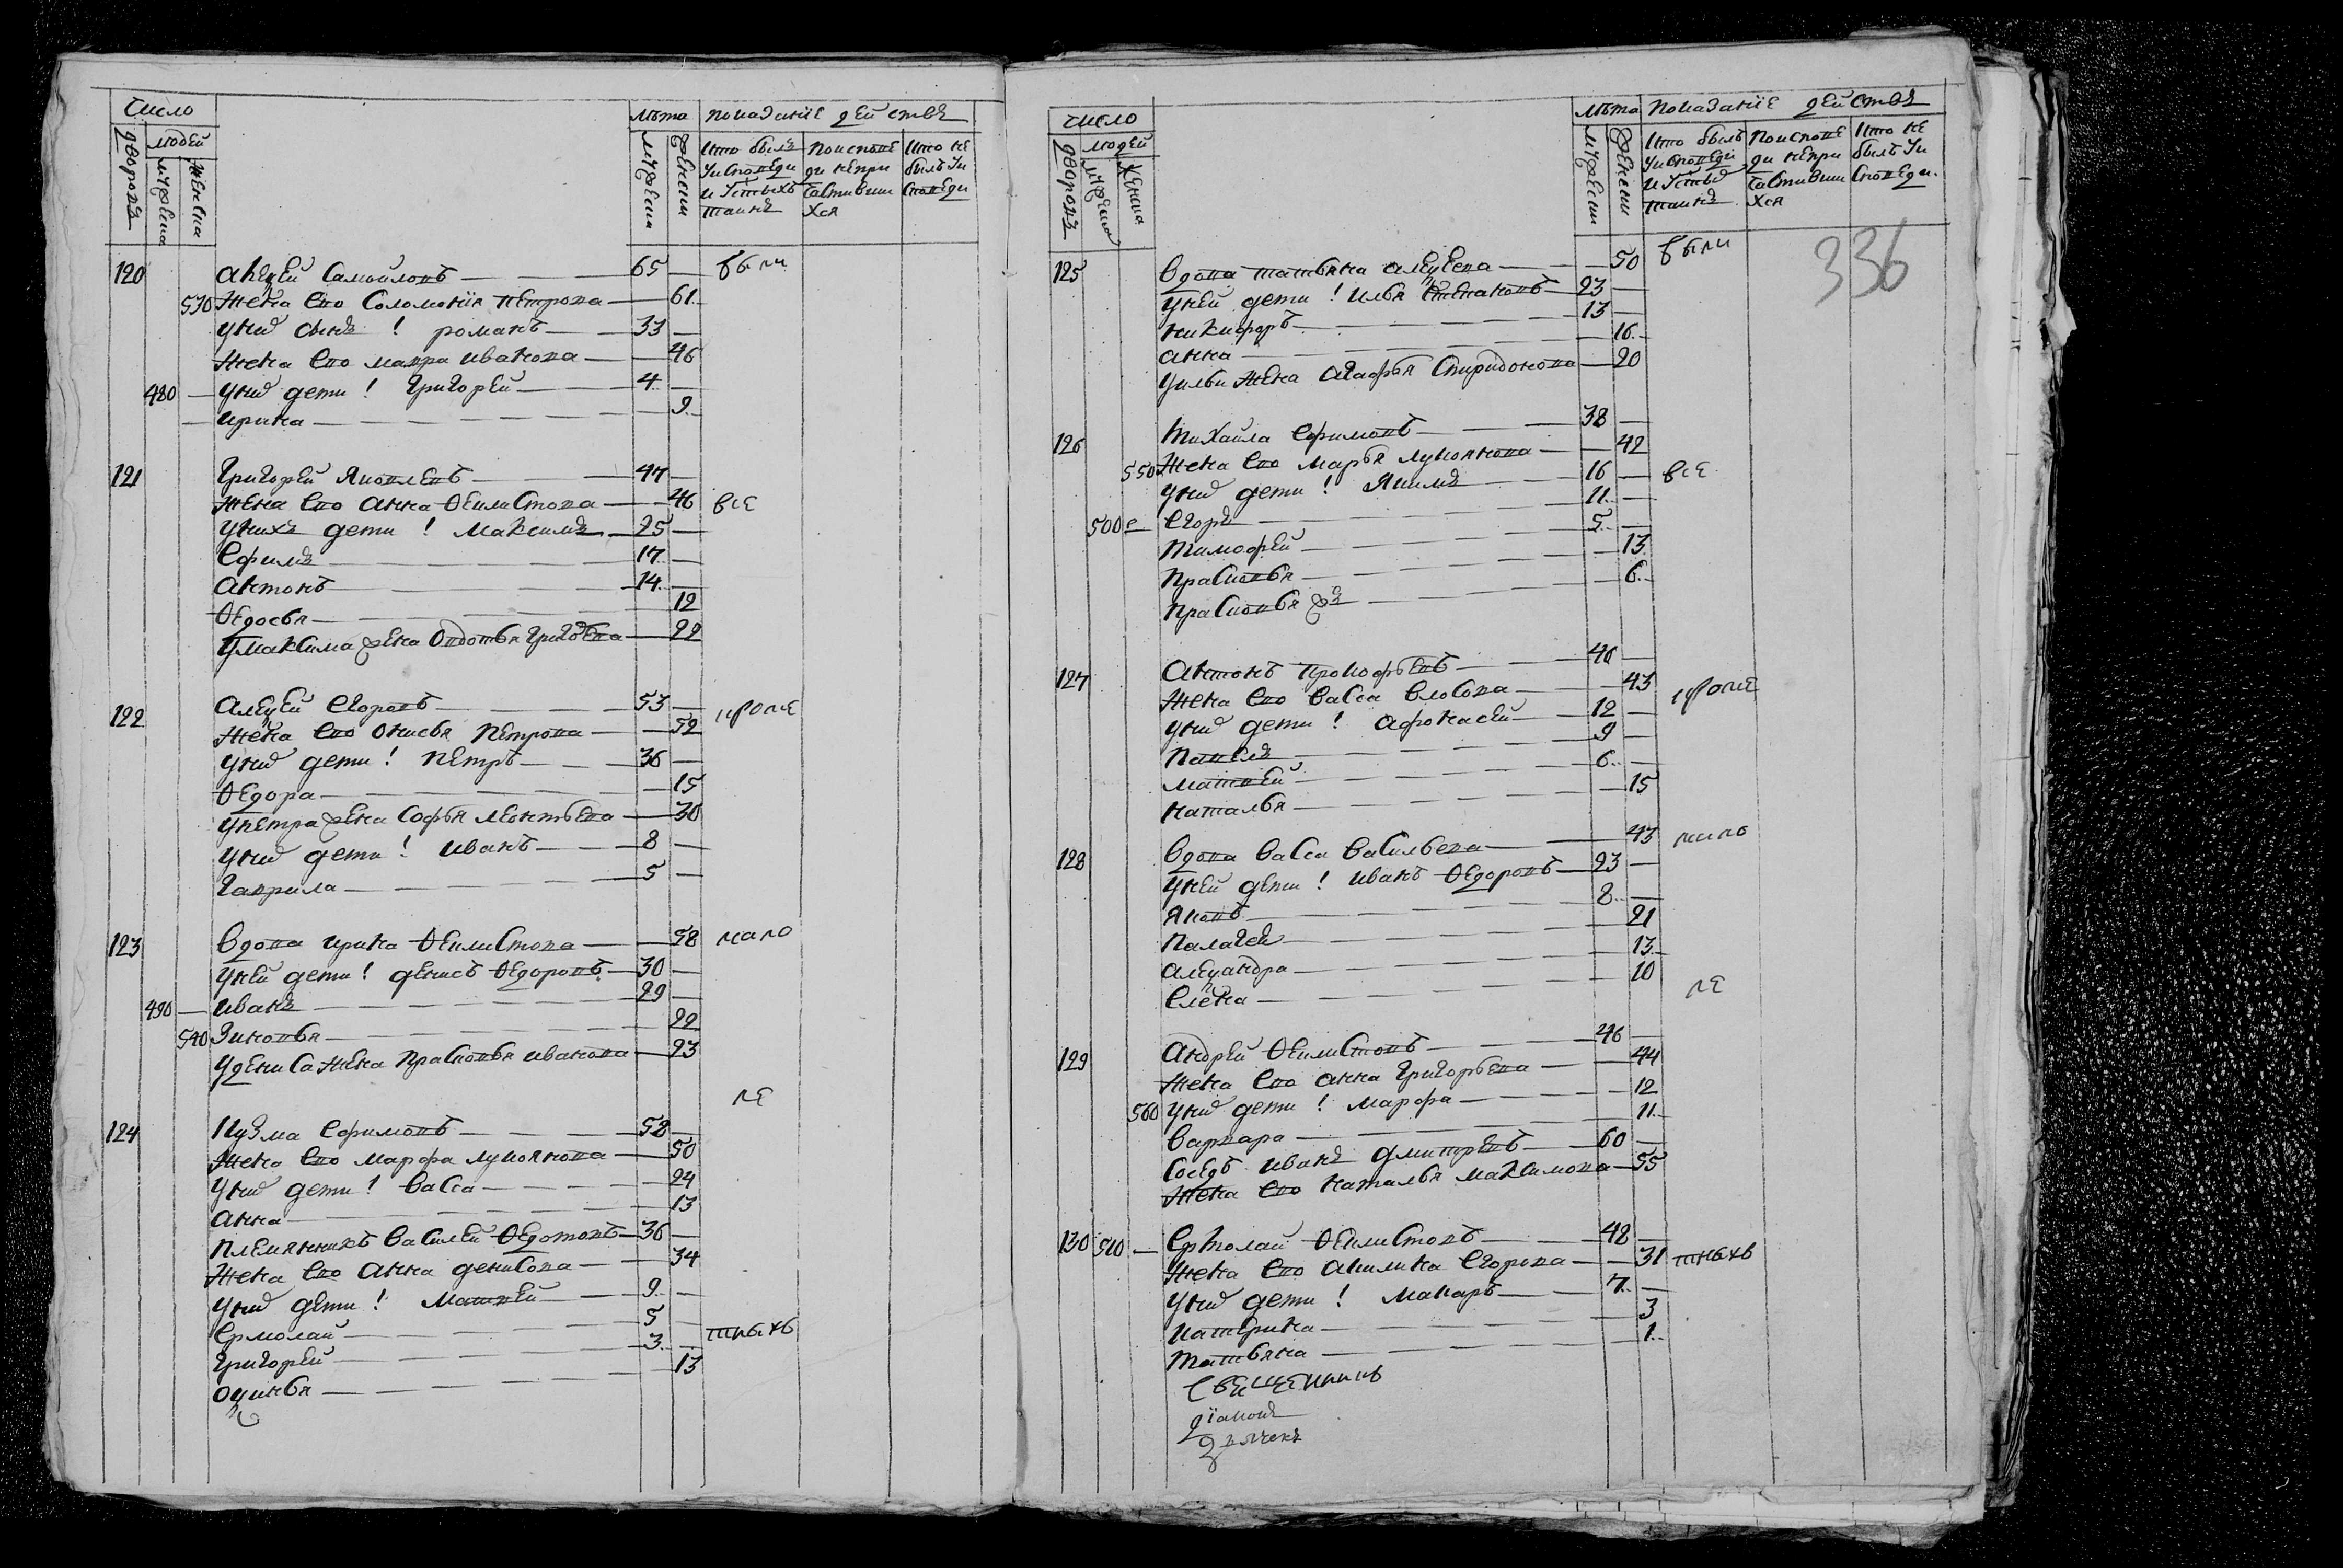 число
дворовъ
людей
мужеска
женска
лѣта
мужески
женски
показание действъ
кто былъ
у исповеди
и у с:тыхъ
таинъ
по испове
ди не при
частивши
хся
кто не
былъ у и
споведи
120 Алексей Самойловъ 65 были
530 Жена его Соломонїя Петрова 61
У них сынъ! Романъ 33
Жена его Мавра Иванова 46
480 У них дети! Григорей 4
Ирина 9
121 Григорей Яковлевъ 47
Жена его Анна Ѳеилистова 46 все
У нихъ дети! Максимъ 25
Ефимъ 17
Антонъ 14
Ѳедосья 12
У Максима жена Овдотья Григорева 22
122 Алексей Егоровъ 53
Жена его Онисья Петрова 52 кроме
У них дети! Петръ 36
Ѳедора 15
У Петра жена Софья Леонтьева 30
У них дети! Иванъ 8
Гаврила 5
123 Вдова Ирина Ѳеилистова 58 мало
У ней дети! Денисъ Ѳедоровъ 30
490 Иванъ 29
540 Зиновья 22
У Дениса жена Прасковья Иванова 23
ле
124 Кузма Ефимовъ 52
Жена его Марфа Лукоянова 50
У них дети! Васса 24
Анна 13
Племянникъ Василей Ѳедотовъ 36
Жена его Анна Денисова 34
У них дети! Матвей 9
Ермолай 5
Григорей 3 тныхъ
Оксинья 13
число
дворовъ
людей
мужеска
женска
лѣта
мужески
женски
показанїе действъ
кто былъ
у исповеди
и у с:тых
таинъ
по испове
ди не при
частивши
хся
кто не
былъ у и
споведи.
336
125 Вдова Татьяна Алексеева 50 были
У ней дети! Илья Степановъ 23
Никифоръ 13
Анна 16
У Ильи жена Агафья Спиридонова 20
126 Михайла Ефимовъ 38
550 Жена его Марья Лукоянова 42
У них дети! Якимъ 16 все
500 Егоръ 11
Тимофей 5
Прасковья 13
Прасковья 6
127 Антонъ Прокофьевъ 46
Жена его Васса Власова 43 кроме
У них дети! Афонасей 12
Павелъ 9
Матвей 6
Наталья 15
128 Вдова Васса Васильева 43 мало
У ней дети! Иванъ Ѳедоровъ 23
Яковъ 8
Палагея 21
Александра 13
Елена 10
ле
129 Андрей Ѳеилистовъ 46
Жена его Анна Григорьева 44
560 У них дети! Марфа 12
Варвара 11
Соседъ Иванъ Дмитревъ 60
Жена его Наталья Максимова 55
130 510 Ермолай Ѳеилистовъ 48
Жена его Акилина Егорова 31 тныхъ
У них дети! Макаръ 7
Катерина 3
Татьяна 1
Свещенникъ
дїаконъ